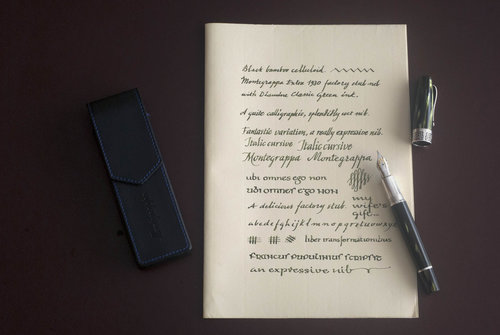 Black bamboo celluloid
Montegrappa Extra 1930 factory stub nib
with Diamine Classic Green ink.
A quite calligraphic, splendidly wet nib.
Fantastic variation, a really expressive nib.
Italic cursive Italic cursive
Montegrappa Montegrappa
ubi omnes ego non
ubi omnes ego non
A delicious factory stub.
my
wife's
gift...
abcdefghijklmnopqrstuvwxyz
liber transformationibus
Francus Papulinius scripsit
an expressive nib